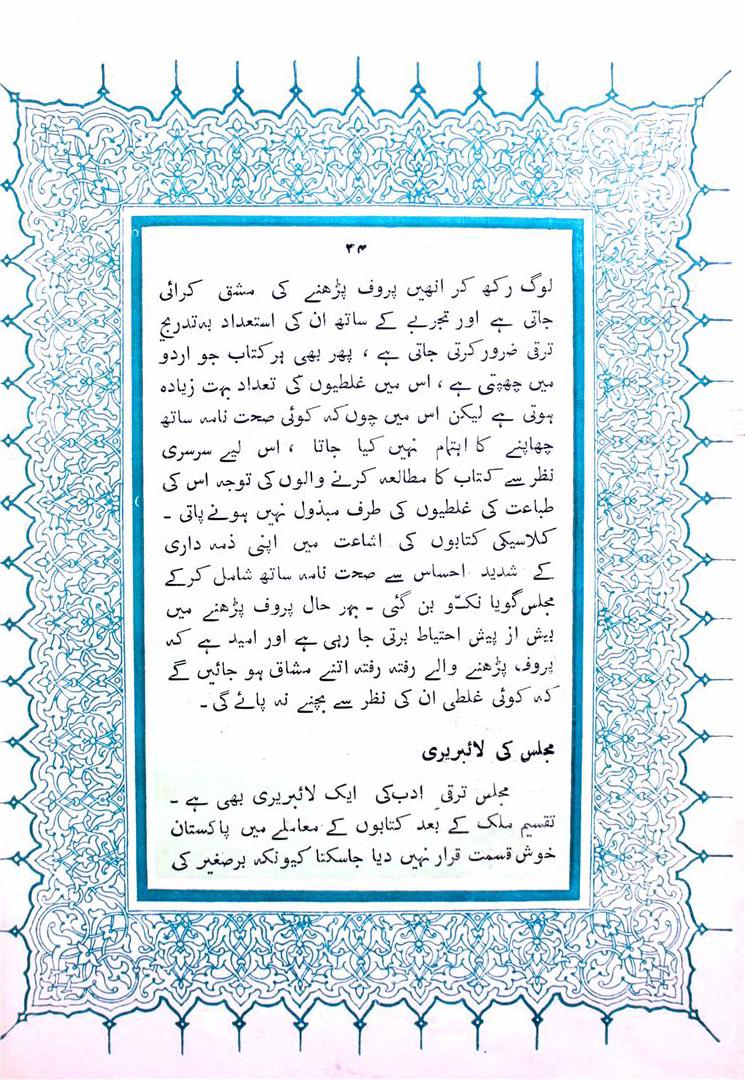 ۴۴
لوگ رکھ کر انھیں پروف پڑھنے کی مشق کرائی
جاتی ہے اور تجربے کے ساتھ ان کی استعداد بہ تدریج
ترقی ضرور کرتی جاتی ہے ، پھر بھی ہر کتاب جو اردو
میں چھپتی ہے ، اس میں غلطیوں کی تعداد بہت زیادہ
ہوتی ہے لیکن اس میں چوں کہ کوئی صحت نامہ ساتھ
چھاپنے کا اہتمام نہیں کیا جاتا ، اس لیے سرسری
نظر سے کتاب کا مطالعہ کرنے والوں کی توجہ اس کی
طباعت کی غلطیوں کی طرف مبذول نہیں ہونے پاتی ۔
کلاسیکی کتابوں کی اشاعت میں اپنی ذمہ داری
کے شدید احساس سے صحت نامہ ساتھ شامل کرکے
مجلس گویا نکّو بن گئی ۔ بہر حال پروف پڑھنے میں
بیش از پیش احتیاط برتی جا رہی ہے اور امید ہے کہ
پروف پڑھنے والے رفتہ رفتہ اتنے مشاق ہو جائیں گے
کہ کوئی غلطی ان کی نظر سے بچنے نہ پائے گی ۔
مجلس کی لائبریری
مجلس ترقی ادب کی ایک لائبریری بھی ہے ۔
تقسیم ملک کے بعد کتابوں کے معاملے میں پاکستان
خوش قسمت قرار نہیں دیا جاسکتا کیونکہ برصغیر کی